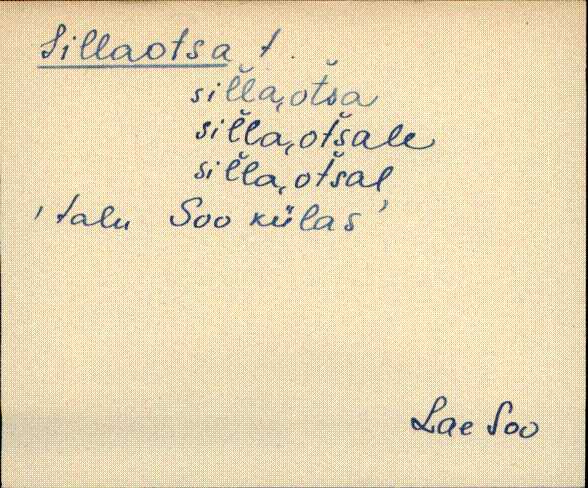 Sillaotsa t.
sil̆l̆a,ot̆sa
sil̆l̆a,ot̆sale
sil̆l̆a,ot̆sal
'talu Soo külas'
Lae Soo